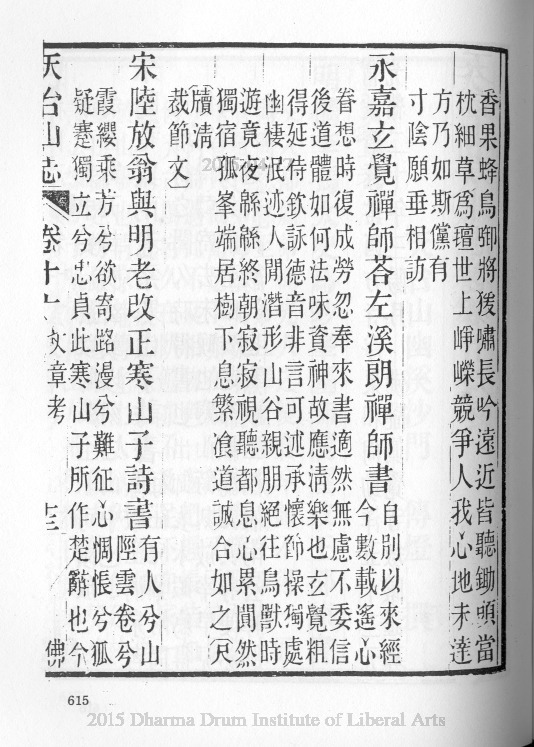 香果蜂鳥啣將猴嘯長吟遠近皆聽鋤頭當
枕細草爲㲲世上崢嶸競爭人我心地未達
方乃如斯儻有
寸陰願垂相訪
永嘉玄覺禪師荅左溪朗禪師書自別以來經
今數載遙心
眷想時復成勞忽奉來書適然無慮不委信
後道體如何法味資神故應淸樂也玄覺粗
得延時欽詠德音非言可述承懷節操獨處
幽棲泯迹人閒潛形山谷親朋絕往鳥獸時
遊竟夜緜緜終朝寂寂視聽都息心累闃然
獨宿孤峯端居樹下息繁飡道誠合如之(尺
牘淸
裁節文)
宋陸放翁與明老改正寒山子詩書有人兮山
陘雲卷兮
霞纓乘芳兮欲寄路漫兮難征心惆悵兮狐
疑蹇獨立兮忠貞此寒山子所作楚辭也今
天台山志 卷十 文章考 士三 佛
615
2015 Dharma Drum Institute of Liberal Arts